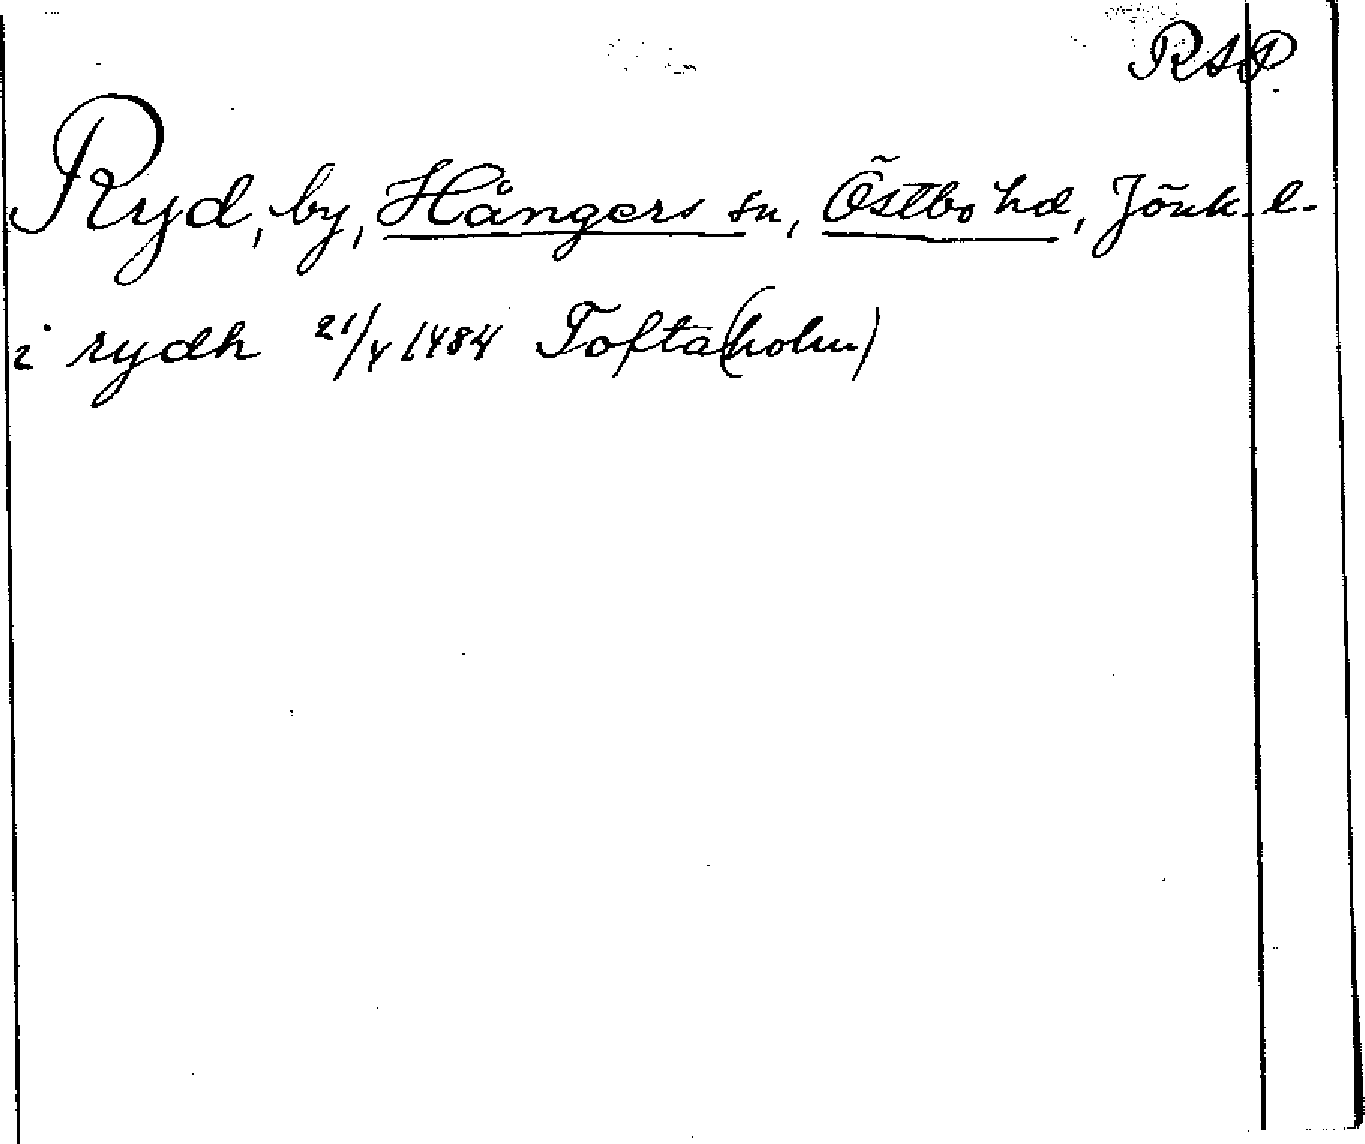 RAP
Ryd, by, Hångers sn, Östbo hd, Jönk. l.
i rydh 21/4 1484 Tofta(holm)